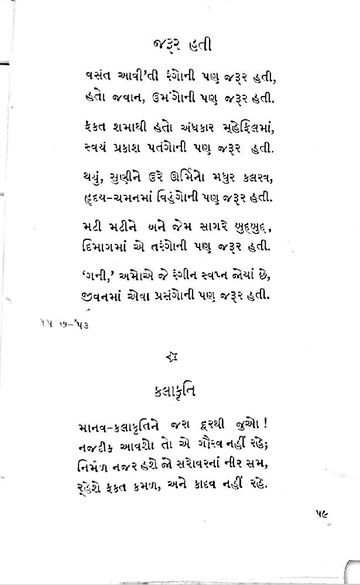 જરૂર હતી
વસંત આવી'તી રંગોની પણ જરૂર હતી,
હતો જવાન, ઉમંગોની પણ જરૂર હતી.
ફકત શમાથી હતો અંધકાર મહેફિલમાં,
સ્વયં પ્રકાશ પતંગોની પણ જરૂર હતી.
થયું, સુણીને ઉરે ઊર્મિનો મધુર કલરવ,
હૃદય-ચમનમાં વિહંગોની પણ જરૂર હતી.
મટી મટીને બને જેમ સાગરે બુદ્બુદ,
દિમાગમાં એ તરંગોની પણ જરૂર હતી.
'ગની,' અમોએ જે રંગીન સ્વપ્ન જોયાં છે,
જીવનમાં એવા પ્રસંગોની પણ જરૂર હતી.
૧૫ ૭-'૫૩
કલાકૃતિ
માનવ-કલાકૃતિને જરા દૂરથી જુઓ !
નજદીક આવશો તો એ ગૌરવ નહીં રહે;
નિર્મળ નજર હશે જો સરોવરનાં નીર સમ,
રહેશે ફકત કમળ, અને કાદવ નહીં રહે.
૫૯